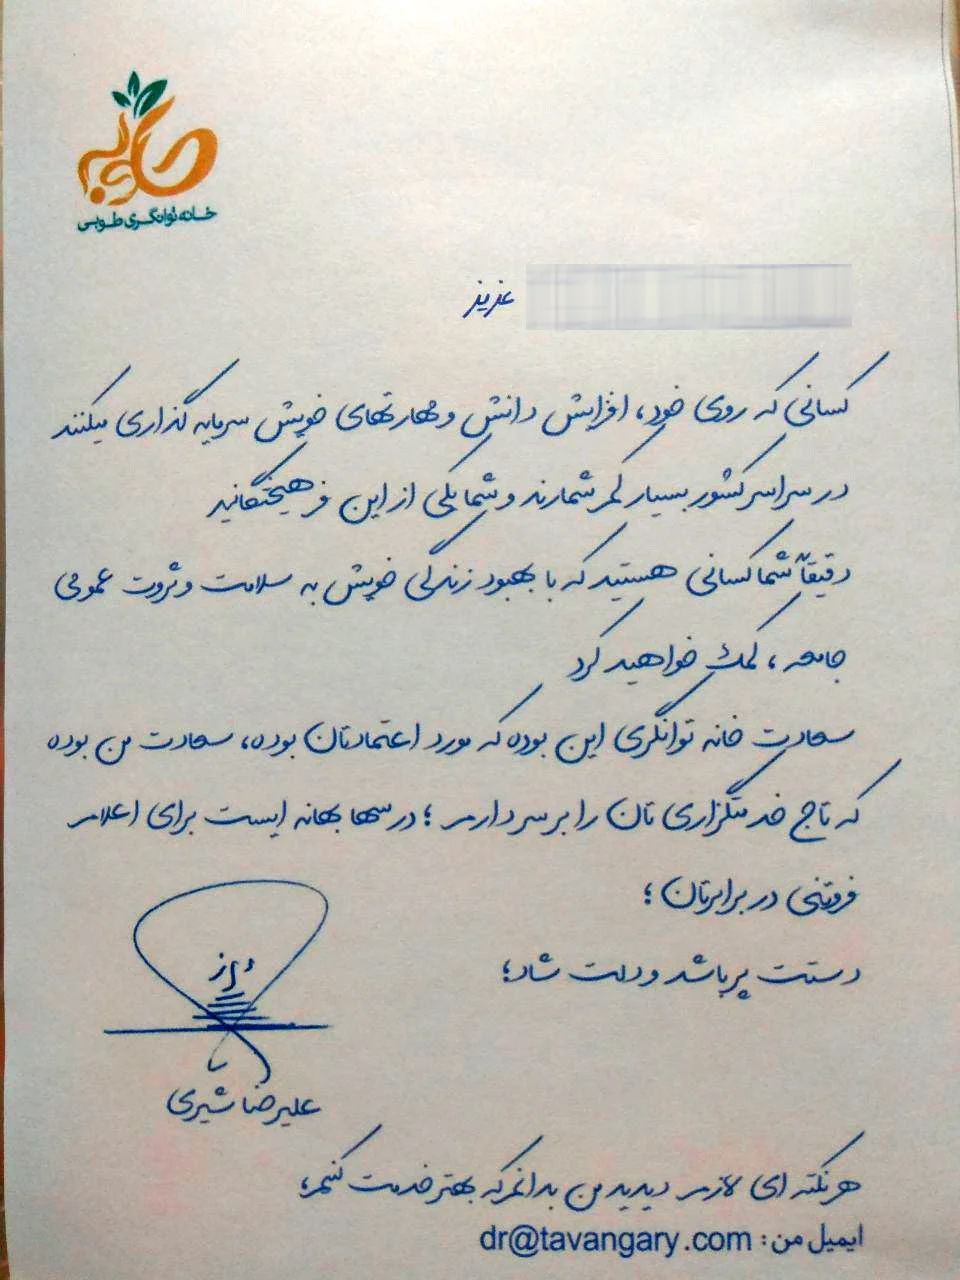 طوبی
خانه توانگری طوبی
عزیز
کسانی که روی خود، افزایش دانش و مهارتهای خویش سرمایه گذاری میکنند
در سراسر کشور بسیار کم شمارند و شما یکی از این فرهیختگانید
دقیقاً شما کسانی هستید که با بهبود زندگی خویش به سلامت و ثروت عمومی
جامعه، کمک خواهید کرد
سعادت خانه توانگری این بوده که مورد اعتمادتان بوده، سعادت من بوده
که تاج خدمتگزاری تان را بر سر دارم؛ درسها بهانه ایست برای اعلام
فروتنی در برابرتان؛
دستت پر باشد و دلت شاد؛
علیرضا شیری
هر نکته ای لازم دیدید من بدانم که بهتر خدمت کنیم،
ایمیل من: dr@tavangary.com